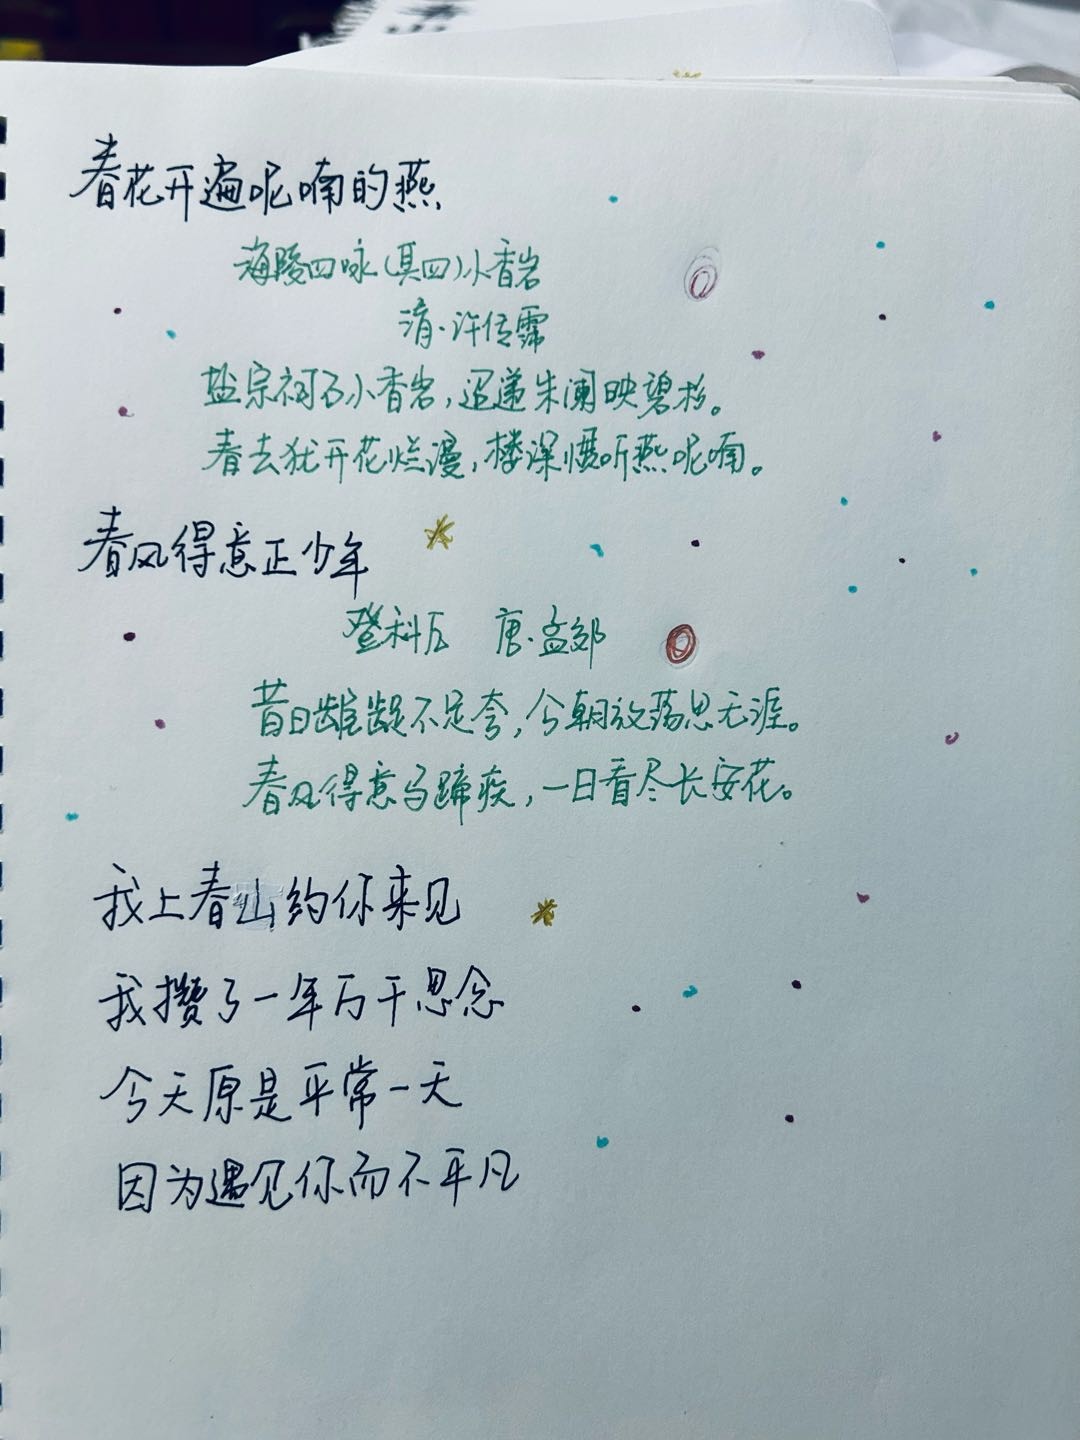 春花开遍呢喃的燕
海陵四咏(其四)小香岩
清·许传霈
盐宗祠石小香岩,迢递朱阑映碧杉。
春去犹开花烂漫,楼深惯听燕呢喃。
春风得意正少年
登科后 唐·孟郊
昔日龌龊不足夸,今朝放荡思无涯。
春风得意马蹄疾,一日看尽长安花。
我上春山约你来见
我攒了一年万千思念
今天原是平常一天
因为遇见你而不平凡